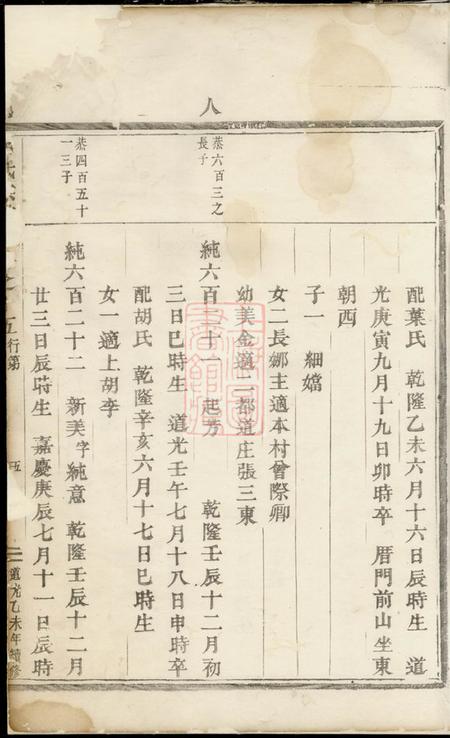 八
配葉氏 乾隆乙未六月十六日辰時生 道
光庚寅九月十九日卯時卒 厝門前山坐東
朝西
子一 細嬉
女二長娜主適本村曾際卿
幼美金適二都道庄張三東
恭六百三之
長子
純六百二十一 起芳 乾隆壬辰十二月初
三日巳時生 道光壬午七月十八日申時卒
配胡氏 乾隆辛亥六月十七日巳時生
女一適上胡李
恭四百五十
一三子
純六百二十二 新美字純意 乾隆壬辰十二月
廿三日辰時生 嘉慶庚辰七月十一日辰時
行第
五
道光乙未年續修